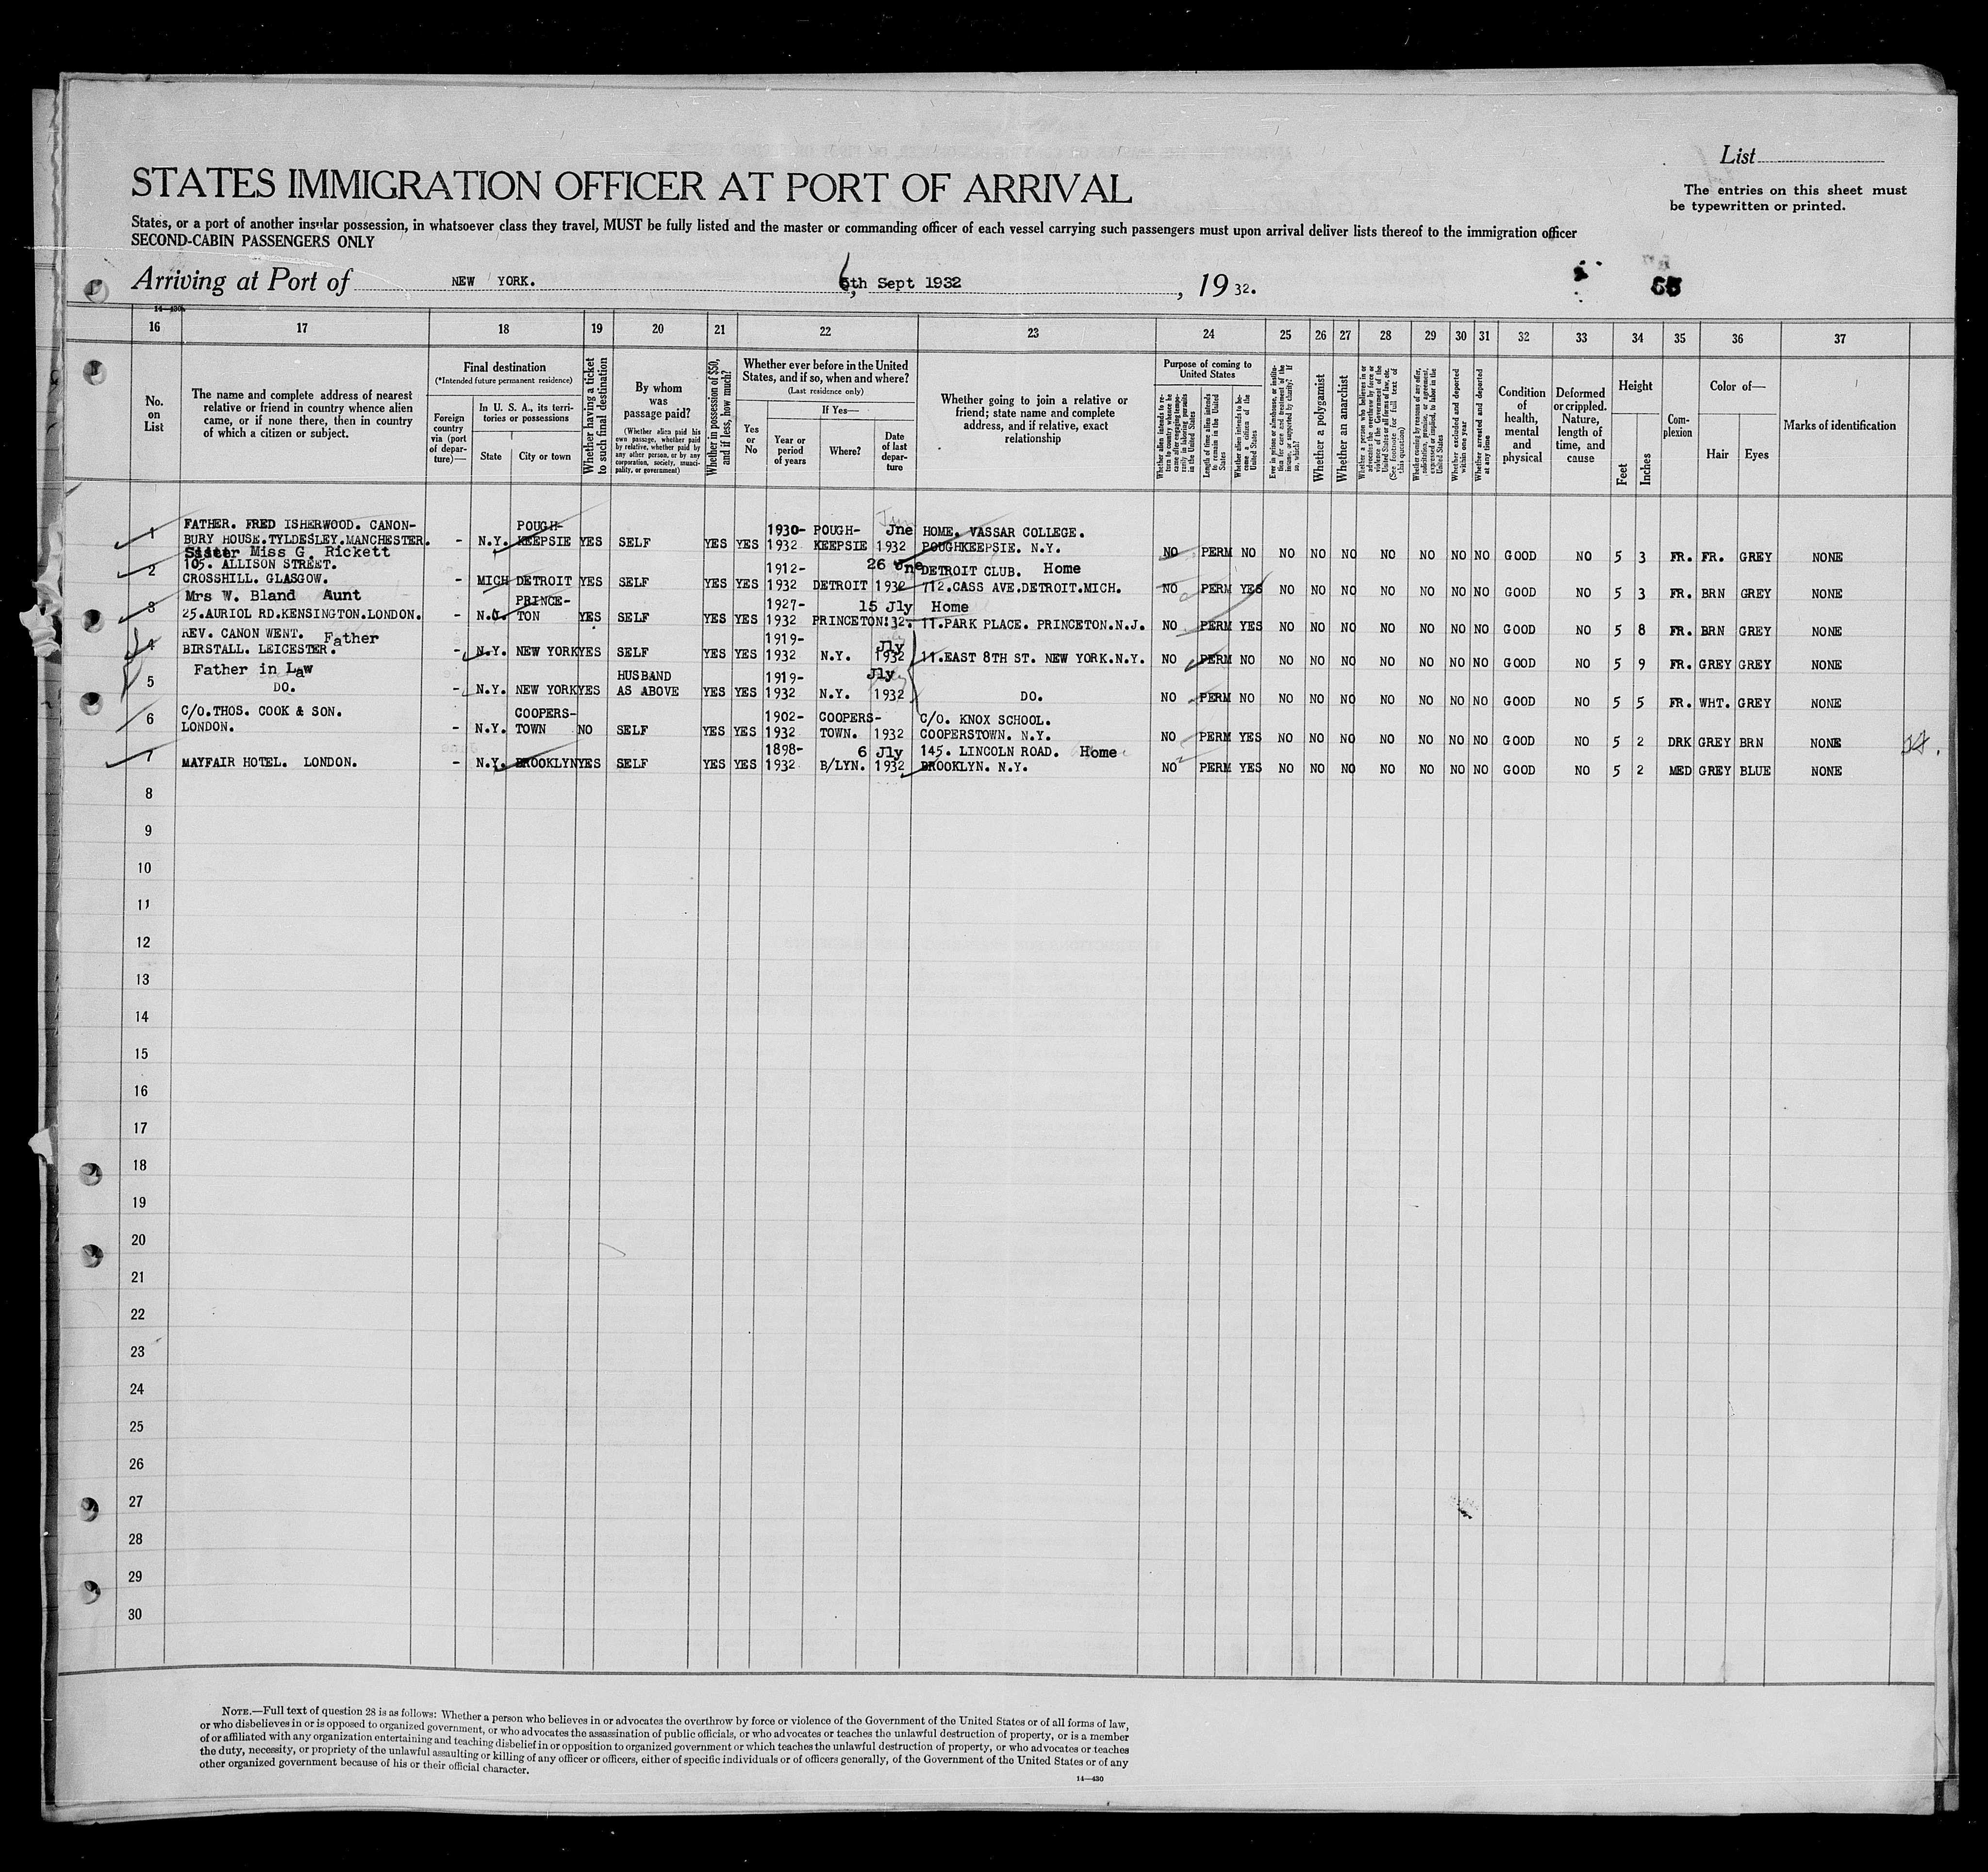 List
STATES IMMIGRATION OFFICER AT PORT OF ARRIVAL
The entries on this sheet must
be typewritten or printed.
States, or a port of another insular possession, in whatsoever class they travel, MUST be fully listed and the master or commanding officer of each vessel carrying such passengers must upon arrival deliver lists thereof to the immigration officer
SECOND-CABIN PASSENGERS ONLY
Arriving at Port of NEW YORK. 6th Sept 1932, 1932.
65
14—430
16 17 18 19 20 21 22 23 24 25 26 27 28 29 30 31 32 33 34 35 36 37
No. on List
The name and complete address of nearest
relative or friend in country whence alien
came, or if none there, then in country
of which a citizen or subject.
Final destination
(*Intended future permanent residence)
Foreign country via (port of departure)—
In U. S. A., its territories or possessions
State
City or town
Whether having a ticket to such final destination
By whom was passage paid?
(Whether alien paid his own passage, whether paid by relative, whether paid by any other person, or by any corporation, society, municipality, or government)
Whether in possession of $50, and if less, how much?
Whether ever before in the United
States, and if so, when and where?
(Last residence only)
Yes or No
If Yes—
Year or period of years
Where?
Date of last departure
Whether going to join a relative or
friend; state name and complete
address, and if relative, exact
relationship
Purpose of coming to
United States
Whether alien intends to return to country whence he came after engaging temporarily in laboring pursuits in the United States
Length of time alien intends to remain in the United States
Whether alien intends to become a citizen of the United States
Ever in prison or almshouse, or institution for care and treatment of the insane, or supported by charity? If so, which?
Whether a polygamist
Whether an anarchist
Whether a person who believes in or advocates the overthrow by force or violence of the Government of the United States or all forms of law, etc. (See footnote for full text of this question)
Whether coming by reasons of any offer, solicitation, promise, or agreement, expressed or implied, to labor in the United States
Whether excluded and deported within one year
Whether arrested and deported at any time
Condition of health, mental and physical
Deformed or crippled. Nature, length of time, and cause
Height
Feet
Inches
Complexion
Color of—
Hair
Eyes
Marks of identification
1 FATHER. FRED ISHERWOOD. CANON-
BURY HOUSE.TYLDESLEY.MANCHESTER. - N.Y. POUGH-
KEEPSIE YES SELF YES YES 1930-
1932 POUGH-
KEEPSIE Jne
1932 HOME. VASSAR COLLEGE.
POUGHKEEPSIE. N.Y. NO PERM NO NO NO NO NO NO NO NO GOOD NO 5 3 FR. FR. GREY NONE
Sister Miss G. Rickett
2 105. ALLISON STREET.
CROSSHILL. GLASGOW. - MICH DETROIT YES SELF YES YES 1912-
1932 DETROIT 26 Jne
1932 DETROIT CLUB. Home
712.CASS AVE.DETROIT.MICH. NO PERM YES NO NO NO NO NO NO NO GOOD NO 5 3 FR. BRN GREY NONE
Mrs W. Bland Aunt
3 25.AURIOL RD.KENSINGTON.LONDON. - N.J. PRINCE-
TON YES SELF YES YES 1927-
1932 PRINCETON 15 Jly
'32. Home
11.PARK PLACE. PRINCETON.N.J. NO PERM YES NO NO NO NO NO NO NO GOOD NO 5 8 FR. BRN GREY NONE
4 REV. CANON WENT. Father
BIRSTALL. LEICESTER. - N.Y. NEW YORK YES SELF YES YES 1919-
1932 N.Y. Jly
1932 11.EAST 8TH ST. NEW YORK.N.Y. NO PERM NO NO NO NO NO NO NO NO GOOD NO 5 9 FR. GREY GREY NONE
Father in Law
5 DO. - N.Y. NEW YORK YES HUSBAND
AS ABOVE YES YES 1919-
1932 N.Y. Jly
1932 DO. NO PERM NO NO NO NO NO NO NO NO GOOD NO 5 5 FR. WHT. GREY NONE
6 C/O.THOS. COOK & SON.
LONDON. - N.Y. COOPERS-
TOWN NO SELF YES YES 1902-
1932 COOPERS-
TOWN. 1932 C/O. KNOX SCHOOL.
COOPERSTOWN. N.Y. NO PERM YES NO NO NO NO NO NO NO GOOD NO 5 2 DRK GREY BRN NONE
7 MAYFAIR HOTEL. LONDON. - N.Y. BROOKLYN YES SELF YES YES 1898-
1932 B/LYN. 6 Jly
1932 145. LINCOLN ROAD. Home
BROOKLYN. N.Y. NO PERM YES NO NO NO NO NO NO NO GOOD NO 5 2 MED GREY BLUE NONE
8
9
10
11
12
13
14
15
16
17
18
19
20
21
22
23
24
25
26
27
28
29
30
NOTE.—Full text of question 28 is as follows: Whether a person who believes in or advocates the overthrow by force or violence of the Government of the United States or of all forms of law,
or who disbelieves in or is opposed to organized government, or who advocates the assassination of public officials, or who advocates or teaches the unlawful destruction of property, or is a member
of or affiliated with any organization entertaining and teaching disbelief in or opposition to organized government or which teaches the unlawful destruction of property, or who advocates or teaches
the duty, necessity, or propriety of the unlawful assaulting or killing of any officer or officers, either of specific individuals or of officers generally, of the Government of the United States or of any
other organized government because of his or their official character.
14—430